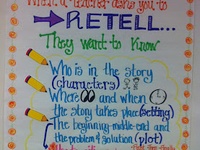 a teacher asks you to
RETELL...
They want to know
Who is in the story
(characters)
Where and when
the story takes place (setting)
The beginning-middle-end and
the problem & solution (plot)